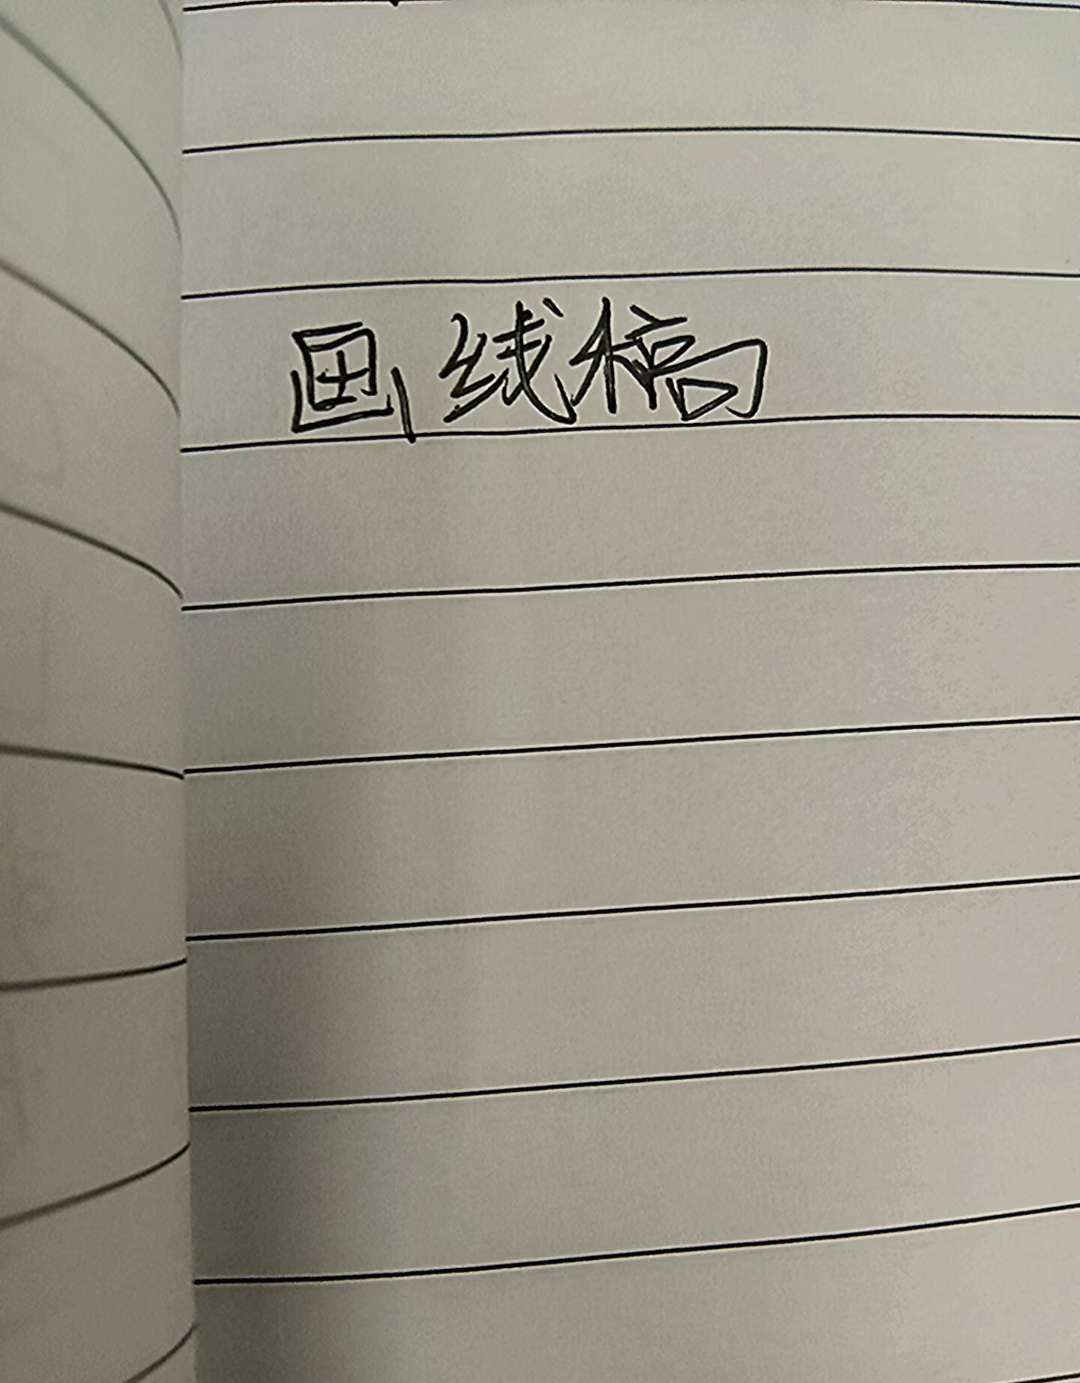 画线稿